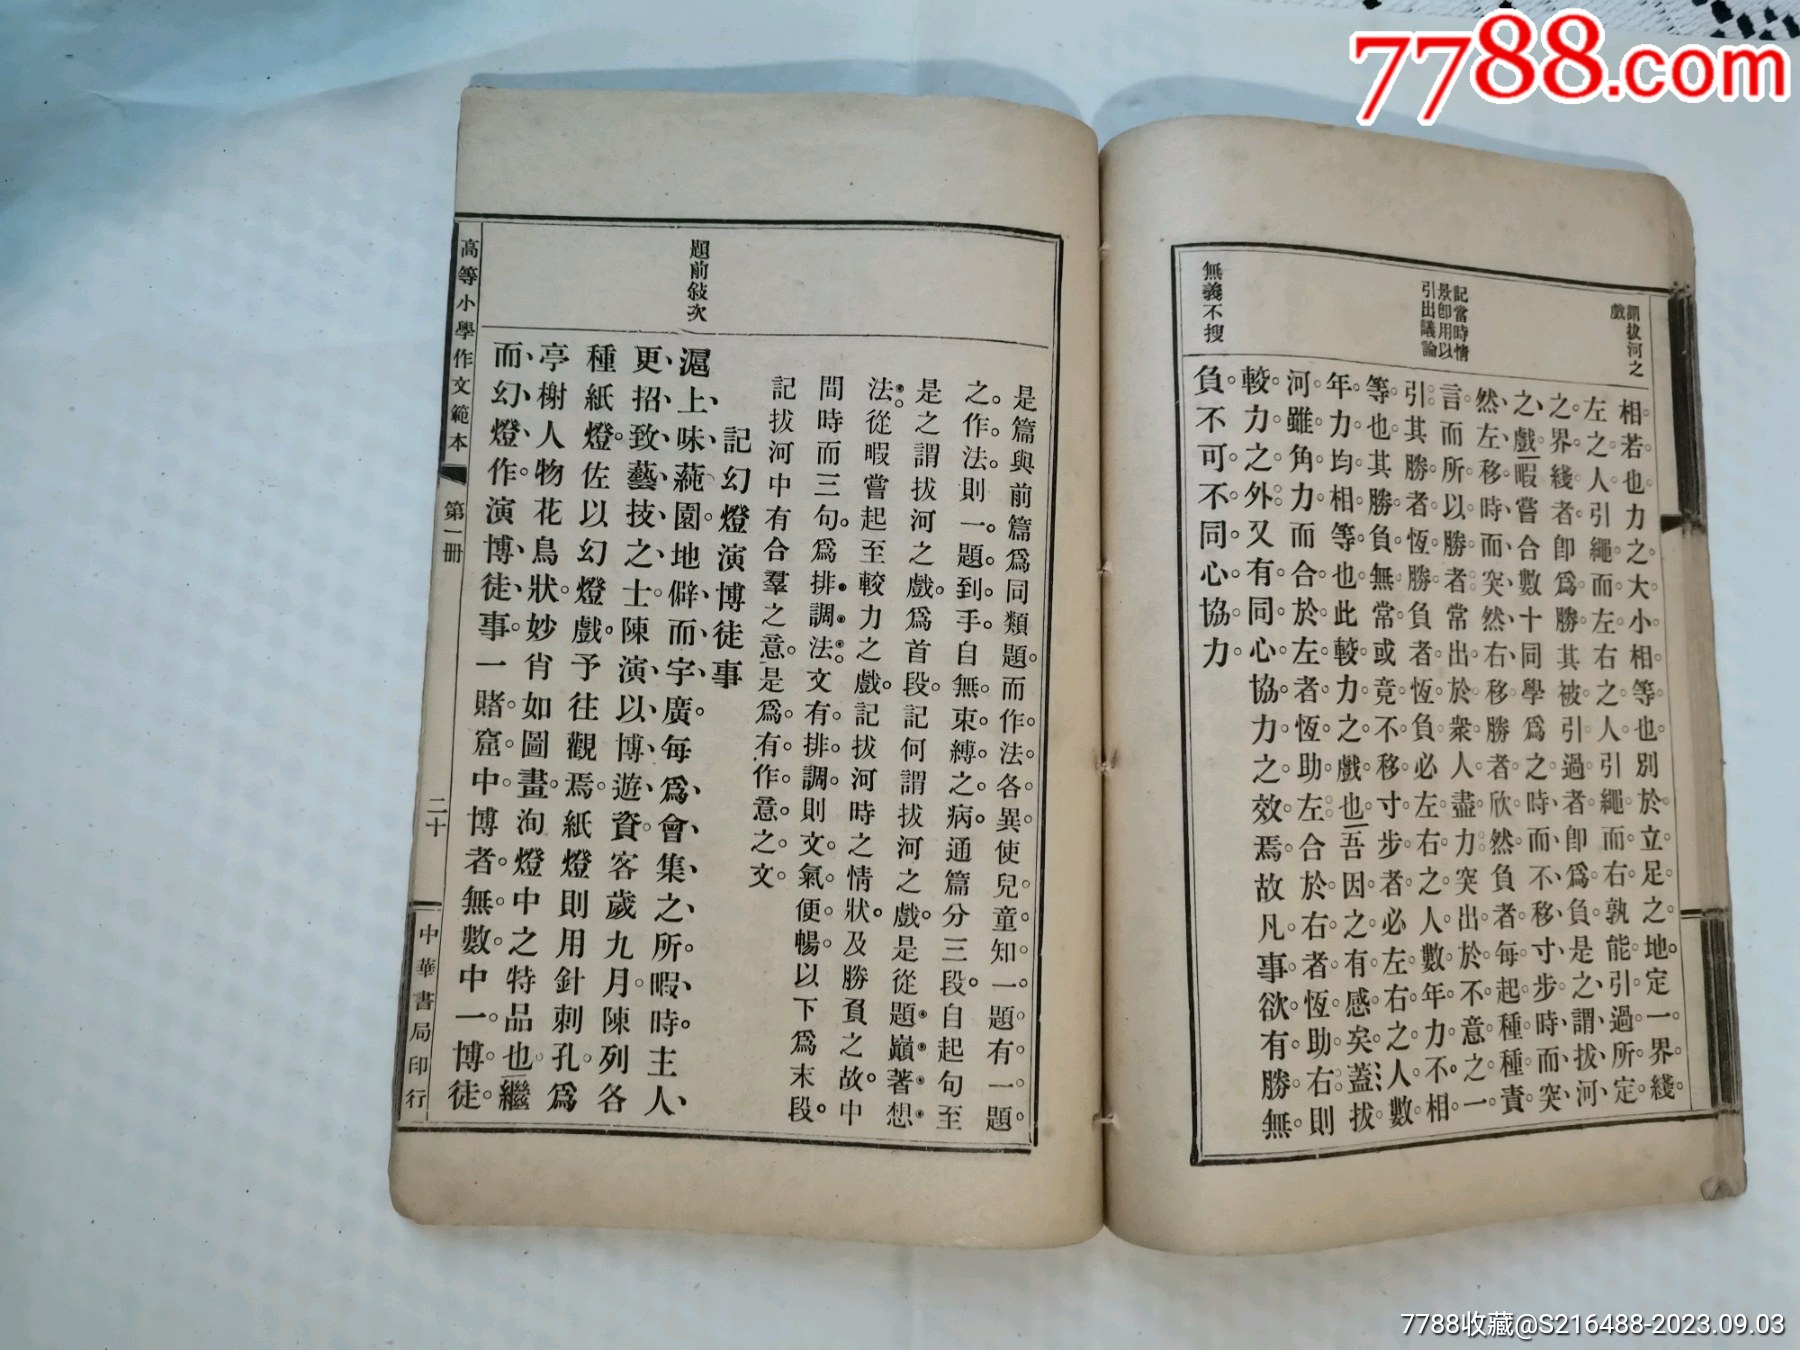 謂拔河之
戲
記當時情
景卽用以
引出議論
無義不搜
相若也。力之大小相等也。別於立足之地。定一界綫。
左之人引繩而左。右之人引繩而右。孰能引過所定
之界綫者。卽爲勝。其被引過者。卽爲負。是之謂拔河
之戲。暇嘗合數十同學爲之。時而不移寸步。時而突
然左移。時而突然右移。勝者欣然。負者每起種種責
言。而所以勝者。常出於衆人盡力。突出於不意之一
引。其勝者恆勝。負者恆負。必左右之人數年力。不相
等也。其勝負無常。或竟不移寸步者。必左右之人數
年力均相等也。此較力之戲也。吾因之有感矣。蓋拔
河雖角力。而合於左者。恆助左。合於右者。恆助右。則
較力之外。又有同心協力之效焉。故凡事欲有勝無
負。不可不同心協力。
題前敍次
是篇與前篇爲同類題。而作法各異。使兒童知一題有一題
之作法。則一題到手。自無束縛之病。通篇分三段。自起句至
是之謂拔河之戲。爲首段。記何謂拔河之戲。是從題巔著想
法。從暇嘗起至較力之戲。記拔河時之情狀。及勝負之故。中
間時而三句。爲排調法。文有排調。則文氣便暢。以下爲末段。
記拔河中有合羣之意。是爲有作意之文。
記幻燈演博徒事
滬上味蒓園。地僻而宇廣。每爲會集之所。暇時。主人
更招致藝技之士。陳演以博遊資。客歲九月。陳列各
種紙燈。佐以幻燈戲。予往觀焉。紙燈則用針刺孔。爲
亭榭人物花鳥狀。妙肖如圖畫。洵燈中之特品也。繼
而幻燈作。演博徒事。一賭窟中。博者無數。中一博徒。
高等小學作文範本
第一册
二十
中華書局印行
7788.com
7788收藏@S216488-2023.09.03